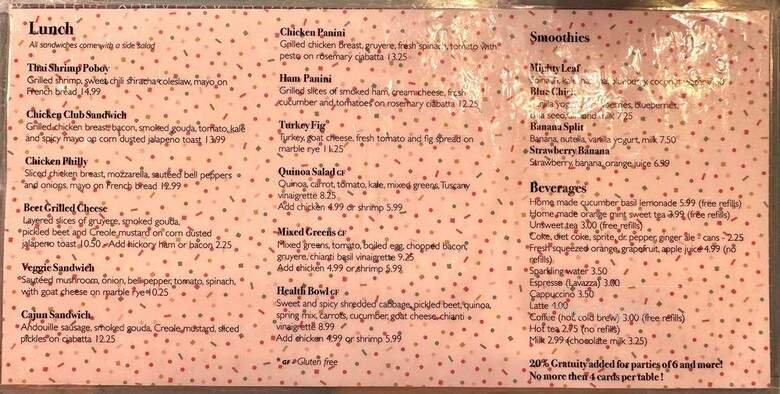 Lunch
All sandwiches come with a side salad
Thai Shrimp Poboy
Grilled shrimp, sweet chili sriracha coleslaw, mayo on
French bread 14.99
Chicken Club Sandwich
Grilled chicken breast, bacon, smoked gouda, tomato, kale
and spicy mayo on corn dusted jalapeno toast 13.99
Chicken Philly
Sliced chicken breast, mozzarella, sautéed bell peppers
and onions, mayo on French bread 12.99
Beet Grilled Cheese
Layered slices of gruyere, smoked gouda,
pickled beet and Creole mustard on corn dusted
jalapeno toast 10.50 - Add hickory ham or bacon 2.25
Veggie Sandwich
Sautéed mushroom, onion, bell pepper, tomato, spinach,
with goat cheese on marble rye 10.25
Cajun Sandwich
Andouille sausage, smoked gouda, Creole mustard, sliced
pickles on ciabatta 12.25
Chicken Panini
Grilled chicken breast, gruyere, fresh spinach, tomato with
pesto on rosemary ciabatta 13.25
Ham Panini
Grilled slices of smoked ham, cream cheese, fresh
cucumber and tomatoes on rosemary ciabatta 12.25
Turkey Fig
Turkey, goat cheese, fresh tomato and fig spread on
marble rye 11.25
Quinoa Salad GF
Quinoa, carrot, tomato, kale, mixed greens, Tuscany
vinaigrette 8.25
Add chicken 4.99 or shrimp 5.99
Mixed Greens GF
Mixed greens, tomato, boiled egg, chopped bacon,
gruyere, chianti basil vinaigrette 9.25
Add chicken 4.99 or shrimp 5.99
Health Bowl GF
Sweet and spicy shredded cabbage, pickled beet, quinoa,
spring mix, carrots, cucumber, goat cheese, chianti
vinaigrette 8.99
Add chicken 4.99 or shrimp 5.99
GF = Gluten free
Smoothies
Mighty Leaf
kale, blueberry, coconut
Blue Chic
blueberries,
milk 7.25
Banana Split
Banana, nutella, vanilla yogurt, milk 7.50
Strawberry Banana
Strawberry, banana, orange juice 6.99
Beverages
Home made cucumber basil lemonade 5.99 (free refills)
Home made orange mint sweet tea 3.99 (free refills)
Unsweet tea 3.00 (free refills)
Coke, diet coke, sprite, dr. pepper, ginger ale - cans - 2.25
Fresh squeezed orange, grapefruit, apple juice 4.99 (no
refills)
Sparkling water 3.50
Espresso (Lavazza) 3.00
Cappuccino 3.50
Latte 4.00
Coffee (hot, cold brew) 3.00 (free refills)
Hot tea 2.75 (no refills)
Milk 2.99 (chocolate milk 3.25)
20% Gratuity added for parties of 6 and more!
No more then 4 cards per table !